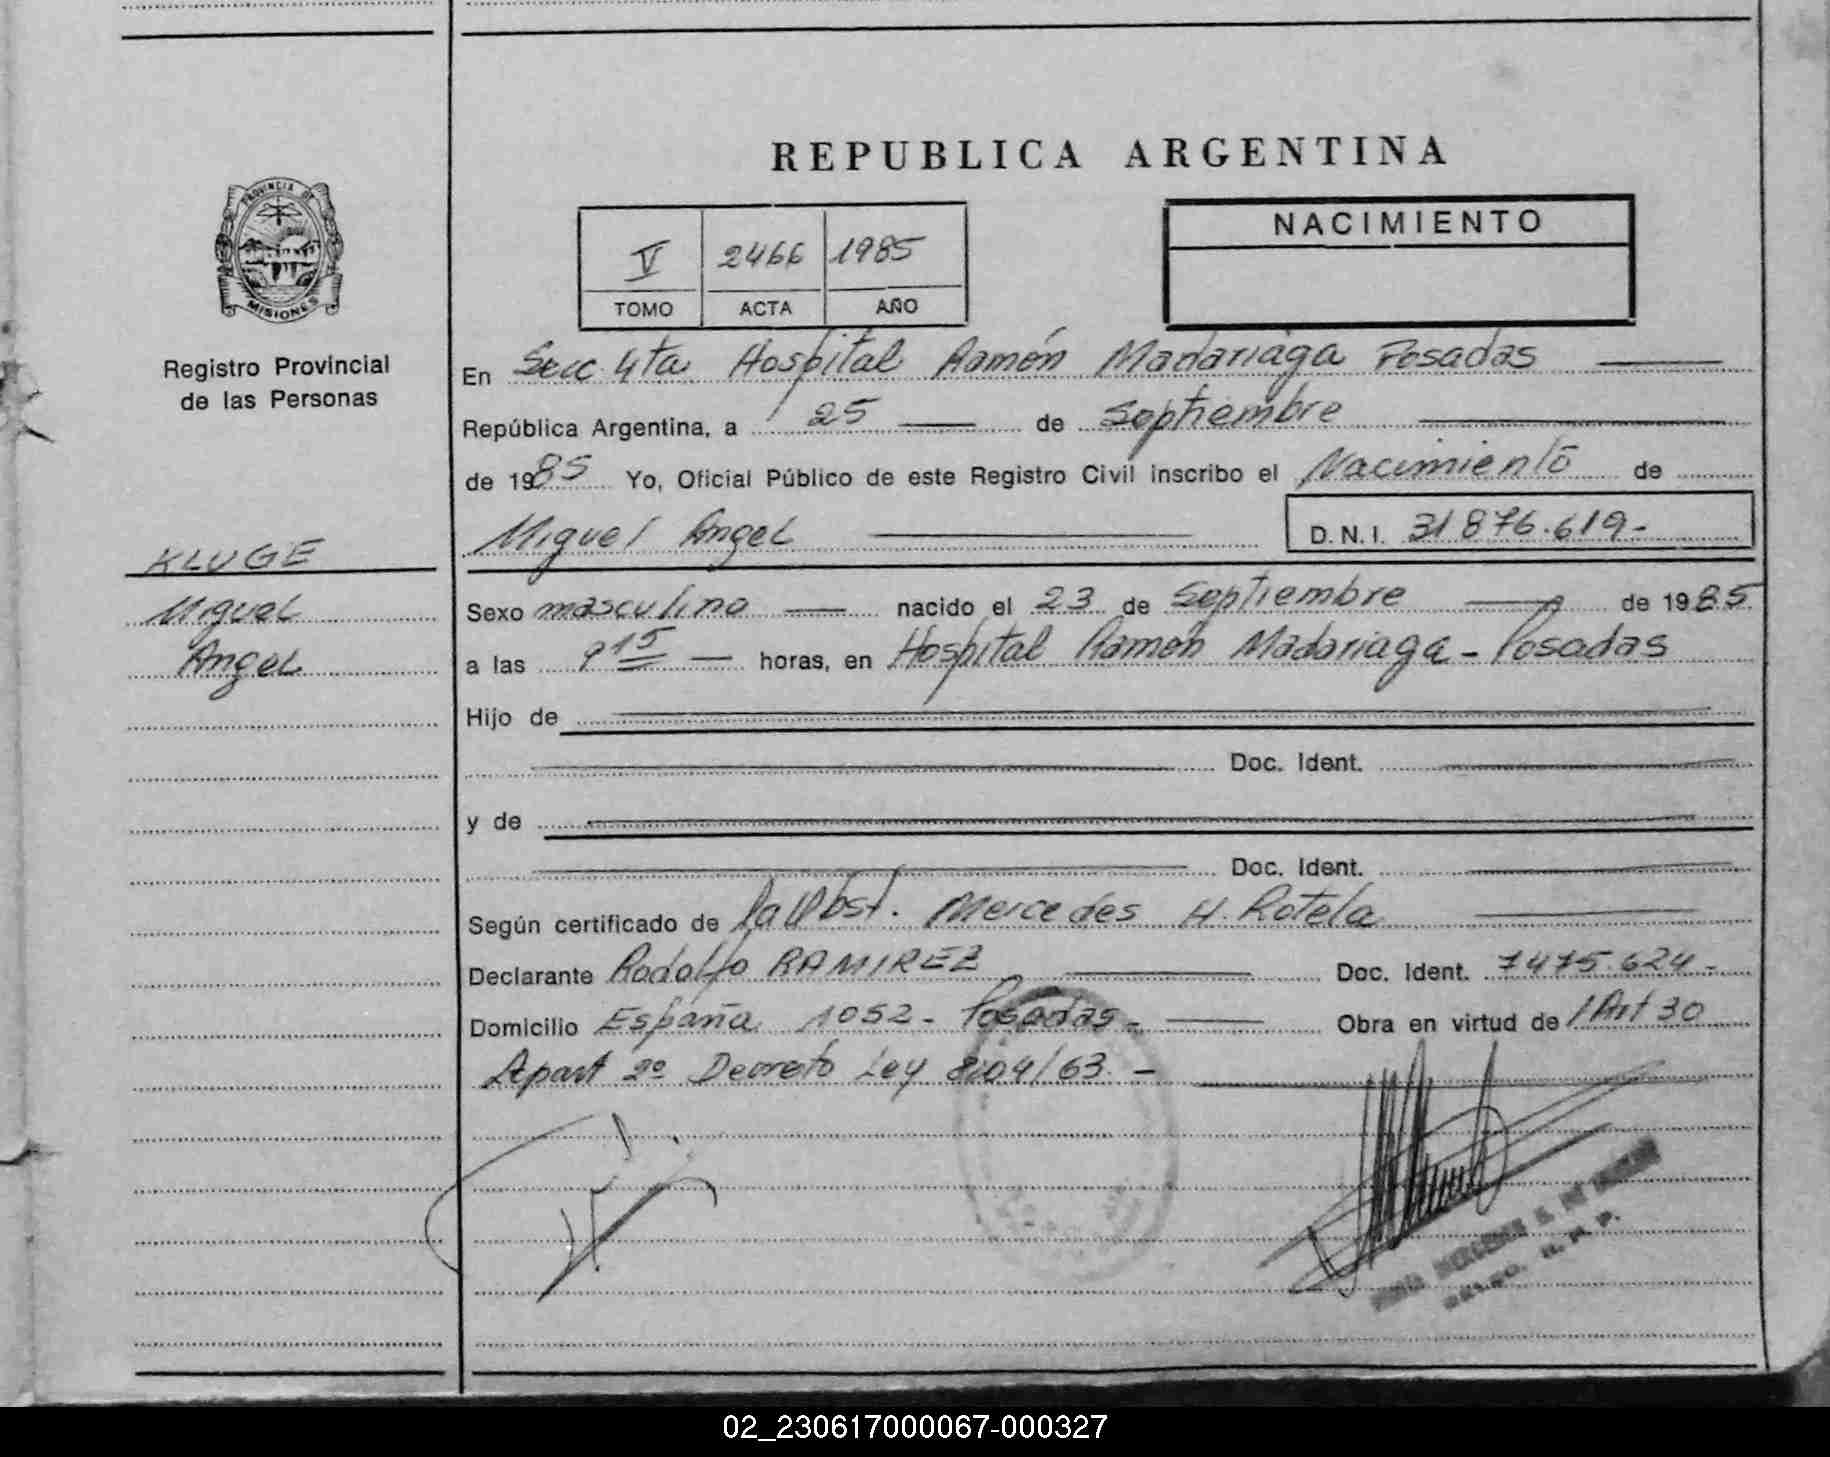 REPUBLICA ARGENTINA
PROVINCIA DE
MISIONES
Registro Provincial
de las Personas
NACIMIENTO
V 2466 1985
TOMO ACTA AÑO
En Secc 4ta Hospital Ramón Madariaga Posadas
República Argentina, a 25 de Septiembre
de 1985 Yo, Oficial Público de este Registro Civil inscribo el Nacimiento de
Miguel Angel D.N.I. 31876.619.-
KLUGE
Miguel
Angel
Sexo masculino nacido el 23 de Septiembre de 1985
a las 9 15 horas, en Hospital Ramón Madariaga - Posadas
Hijo de
Doc. Ident.
y de
Doc. Ident.
Según certificado de la Obst. Mercedes H. Rotela
Declarante Rodolfo RAMIREZ Doc. Ident. 7475.624.-
Domicilio España 1052 - Posadas - Obra en virtud de l'Art 30
Apart 2º Decreto Ley 8204/63. -
02_230617000067-000327